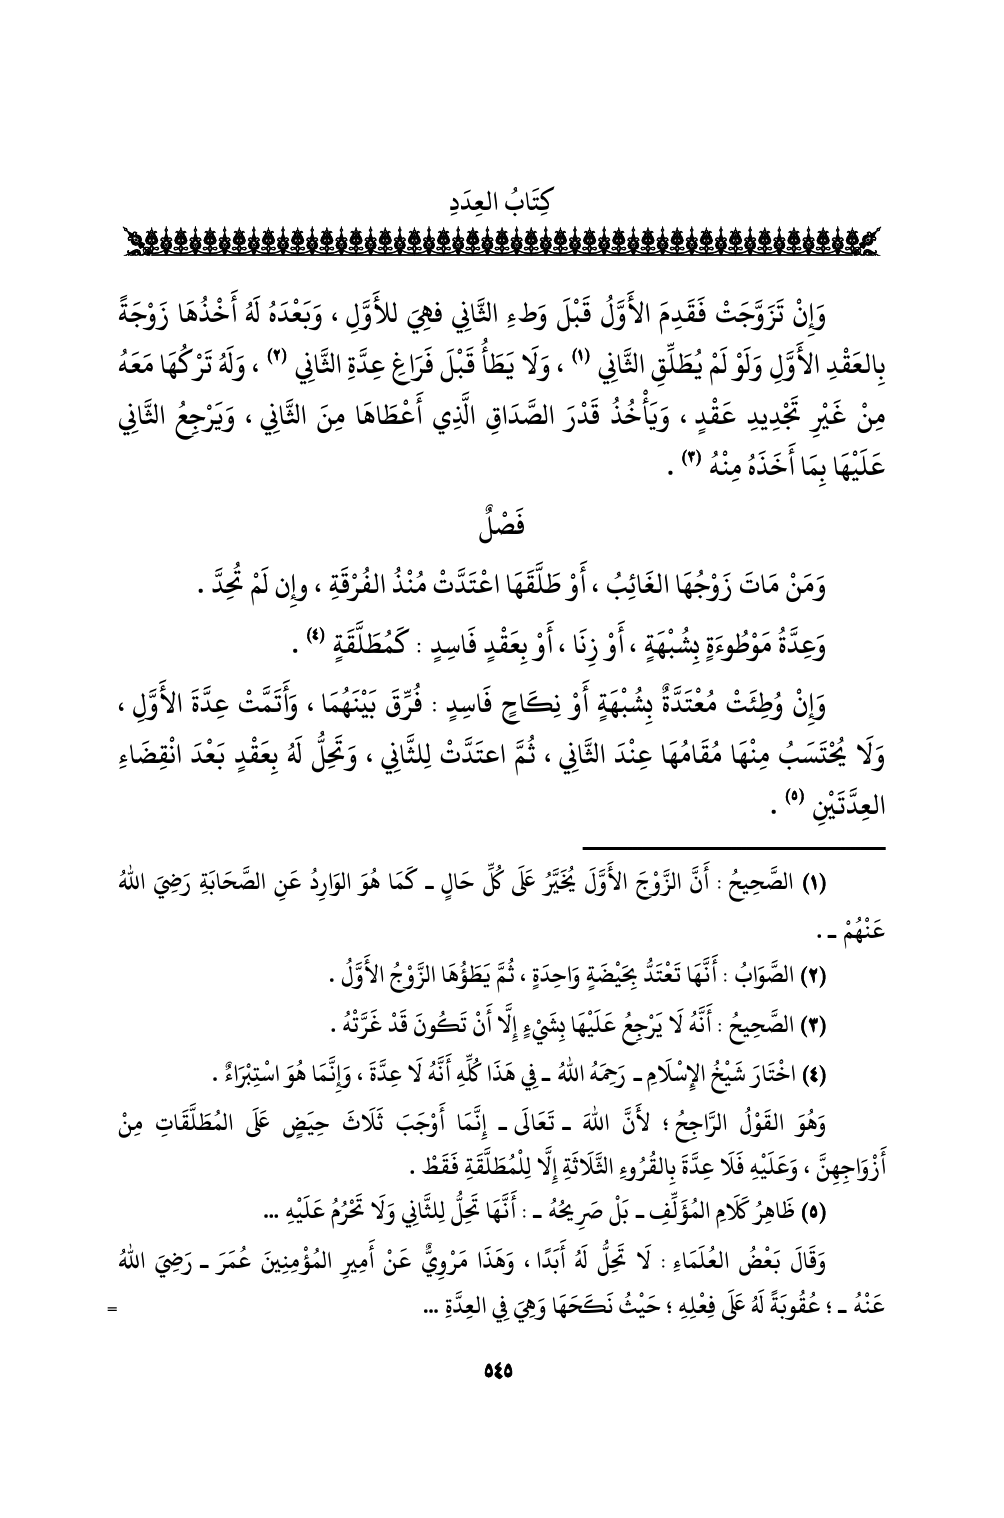 كِتَابُ العِدَدِ
وَإِنْ تَزَوَّجَتْ فَقَدِمَ الأَوَّلُ قَبْلَ وَطءِ الثَّانِي فهِيَ للأَوَّلِ ، وَبَعْدَهُ لَهُ أَخْذُهَا زَوْجَةً
بِالعَقْدِ الأَوَّلِ وَلَوْ لَمْ يُطَلِّقِ الثَّانِي (١) ، وَلَا يَطَأُ قَبْلَ فَرَاغِ عِدَّةِ الثَّانِي (٢) ، وَلَهُ تَرْكُهَا مَعَهُ
مِنْ غَيْرِ تَجْدِيدِ عَقْدٍ ، وَيَأْخُذُ قَدْرَ الصَّدَاقِ الَّذِي أَعْطَاهَا مِنَ الثَّانِي ، وَيَرْجِعُ الثَّانِي
عَلَيْهَا بِمَا أَخَذَهُ مِنْهُ (٣) .
فَصْلٌ
وَمَنْ مَاتَ زَوْجُهَا الغَائِبُ ، أَوْ طَلَّقَهَا اعْتَدَّتْ مُنْذُ الفُرْقَةِ ، وإِن لَمْ تُحِدَّ .
وَعِدَّةُ مَوْطُوءَةٍ بِشُبْهَةٍ ، أَوْ زِنَا ، أَوْ بِعَقْدٍ فَاسِدٍ : كَمُطَلَّقَةٍ (٤) .
وَإِنْ وُطِئَتْ مُعْتَدَّةٌ بِشُبْهَةٍ أَوْ نِكَاحٍ فَاسِدٍ : فُرِّقَ بَيْنَهُمَا ، وَأَتَمَّتْ عِدَّةَ الأَوَّلِ ،
وَلَا يُحْتَسَبُ مِنْهَا مُقَامُهَا عِنْدَ الثَّانِي ، ثُمَّ اعتَدَّتْ لِلثَّانِي ، وَتَحِلُّ لَهُ بِعَقْدٍ بَعْدَ انْقِضَاءِ
العِدَّتَيْنِ (٥) .
(١) الصَّحِيحُ : أَنَّ الزَّوْجَ الأَوَّلَ يُخَيَّرُ عَلَى كُلِّ حَالٍ ـ كَمَا هُوَ الوَارِدُ عَنِ الصَّحَابَةِ رَضِيَ اللهُ
عَنْهُمْ ـ .
(٢) الصَّوَابُ : أَنَّهَا تَعْتَدُّ بِحَيْضَةٍ وَاحِدَةٍ ، ثُمَّ يَطَؤُهَا الزَّوْجُ الأَوَّلُ .
(٣) الصَّحِيحُ : أَنَّهُ لَا يَرْجِعُ عَلَيْهَا بِشَيْءٍ إِلَّا أَنْ تَكُونَ قَدْ غَرَّتْهُ .
(٤) اخْتَارَ شَيْخُ الإِسْلَامِ ـ رَحِمَهُ اللهُ ـ فِي هَذَا كُلِّهِ أَنَّهُ لَا عِدَّةَ ، وَإِنَّمَا هُوَ اسْتِبْرَاءٌ .
وَهُوَ القَوْلُ الرَّاجِحُ ؛ لأَنَّ اللهَ ـ تَعَالَى ـ إِنَّمَا أَوْجَبَ ثَلَاثَ حِيَضٍ عَلَى المُطَلَّقَاتِ مِنْ
أَزْوَاجِهِنَّ ، وَعَلَيْهِ فَلَا عِدَّةَ بِالقُرُوءِ الثَّلَاثَةِ إِلَّا لِلْمُطَلَّقَةِ فَقَطْ .
(٥) ظَاهِرُ كَلَامِ المُؤَلِّفِ ـ بَلْ صَرِيحُهُ ـ : أَنَّهَا تَحِلُّ لِلثَّانِي وَلَا تَحْرُمُ عَلَيْهِ ...
وَقَالَ بَعْضُ العُلَمَاءِ : لَا تَحِلُّ لَهُ أَبَدًا ، وَهَذَا مَرْوِيٌّ عَنْ أَمِيرِ المُؤْمِنِينَ عُمَرَ ـ رَضِيَ اللهُ
عَنْهُ ـ ؛ عُقُوبَةً لَهُ عَلَى فِعْلِهِ ؛ حَيْثُ نَكَحَهَا وَهِيَ فِي العِدَّةِ ... =
٥٤٥